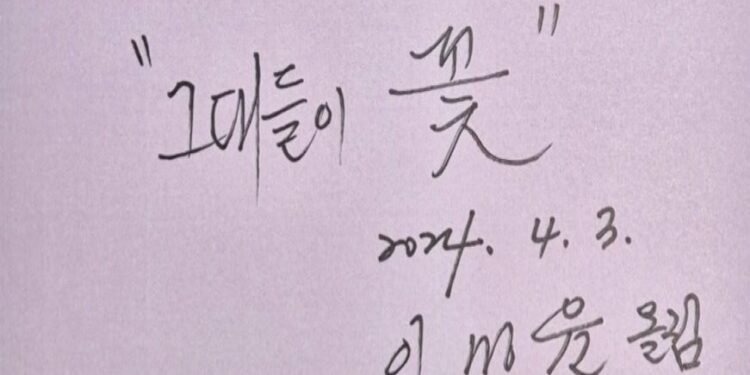 "그대들이 꽃"
2024. 4. 3.
이 율 올림